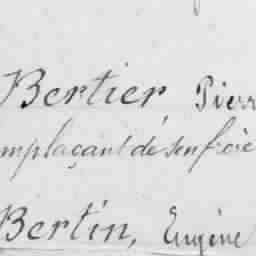 Bertier Pierr
mplaçant de son frère
Bertin, Eugène